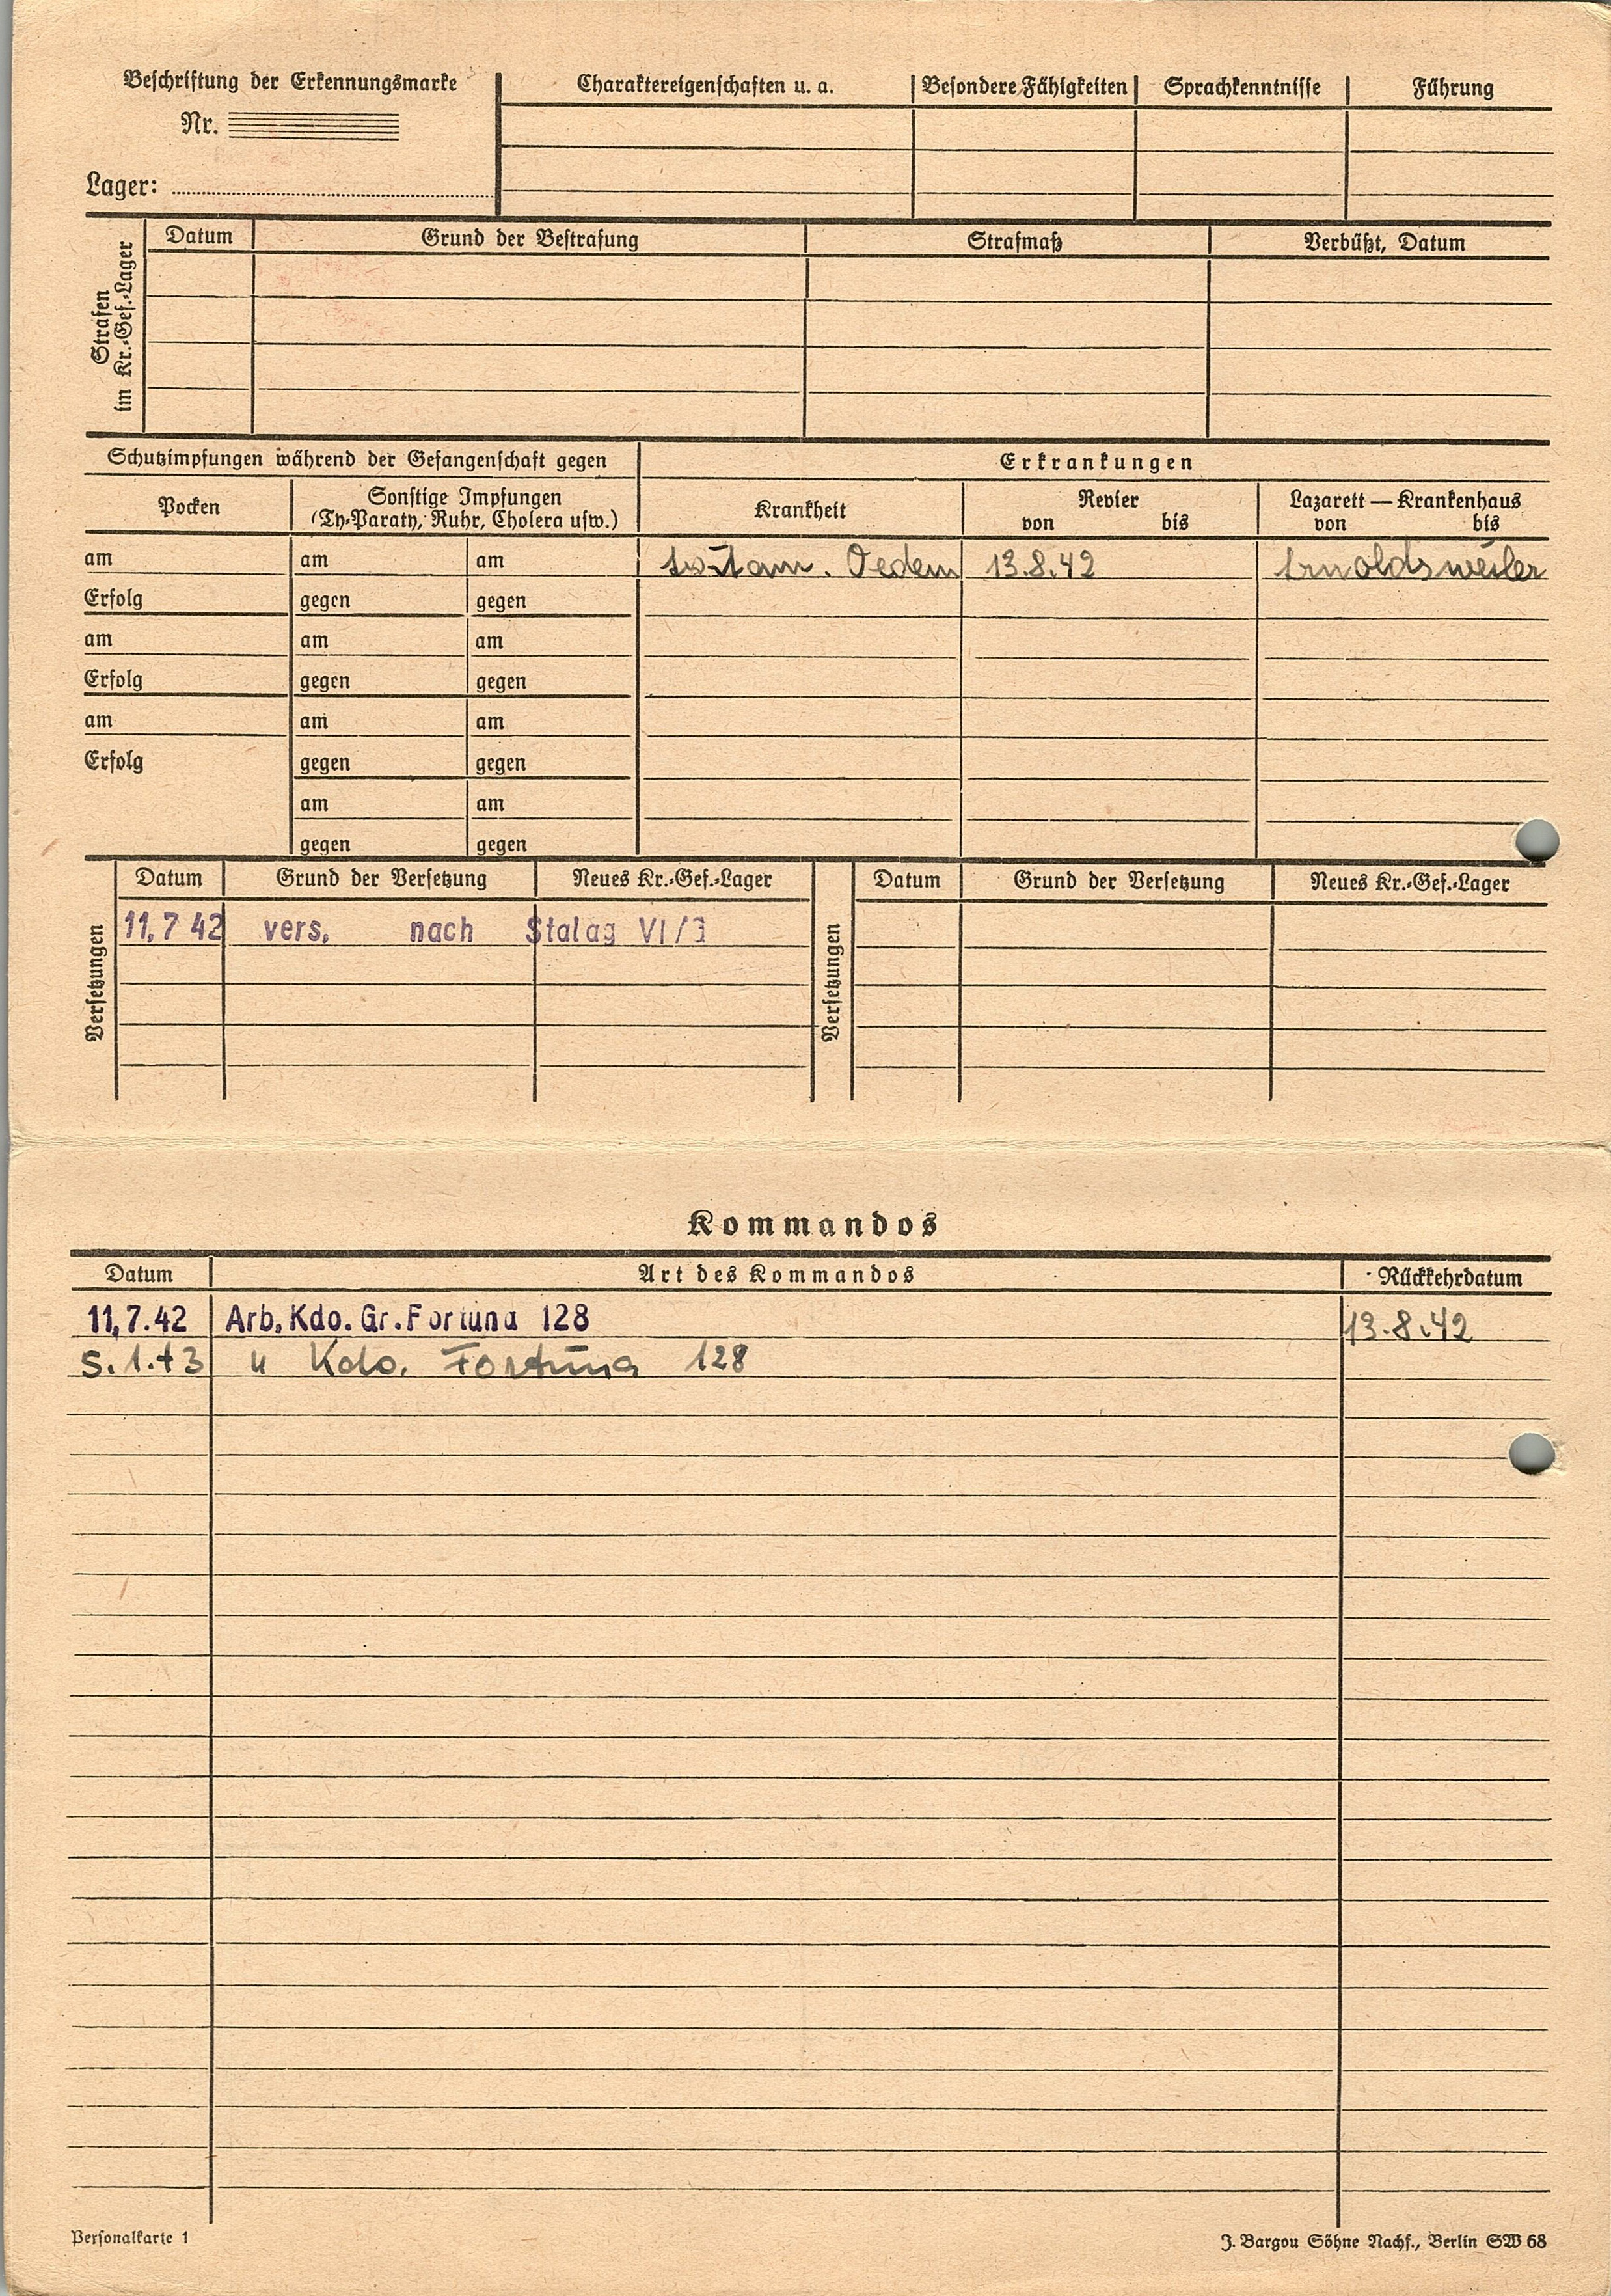 Beschriftung der Erkennungsmarke
Nr.
Lager:
Charaktereigenschaften u. a. Besondere Fähigkeiten Sprachkenntnisse Führung
Strafen
im Kr.-Gef.-Lager
Datum Grund der Bestrafung Strafmaß Verbüßt, Datum
Schutzimpfungen während der Gefangenschaft gegen Erkrankungen
Pocken Sonstige Impfungen
(Ty-Paraty, Ruhr, Cholera usw.)
Krankheit Revier
von bis
Lazarett — Krankenhaus
von bis
am am am Oedem 13.8.42 Arnoldsweiler
Erfolg gegen gegen
am am am
Erfolg gegen gegen
am am am
Erfolg gegen gegen
am am
gegen gegen
Versetzungen
Datum Grund der Versetzung Neues Kr.-Gef.-Lager
11,7 42 vers. nach Stalag VI/
Versetzungen
Datum Grund der Versetzung Neues Kr.-Gef.-Lager
Kommandos
Datum Art des Kommandos Rückkehrdatum
11,7.42 Arb. Kdo. Gr. Fortuna 128 13.8.42
5.1.43 " Kdo. Fortuna 128
Personalkarte 1
J. Bargou Söhne Nachf., Berlin SW 68